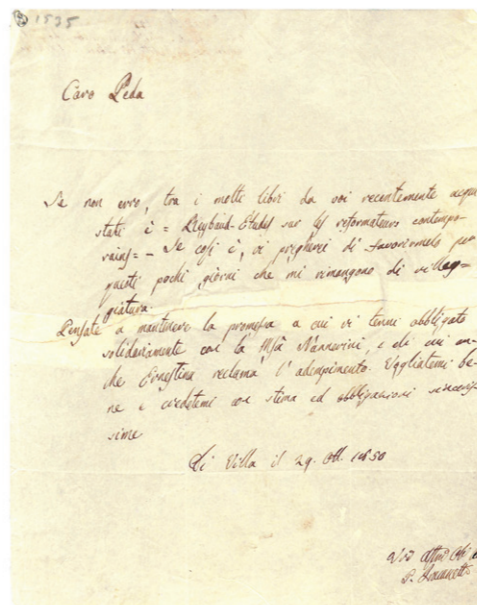 1535
Caro Peda
Se non erro, tra i molti libri da voi recentemente acqui
stati è = Reybaud-Etudes sur les réformateurs contempo-
rains = - Se così è, vi pregherei di favorirmelo per
questi pochi giorni che mi rimangono di villeg=
giatura.
Pensate a mantenere la promessa a cui vi tenni obbligato
solidariamente con la Nannerini, e di cui an-
che Ernestina reclama l'adempimento. Vogliatemi be-
ne e credetemi con stima ed obbligazioni sinceris
sime
Di Villa il 29. Ott. 1850